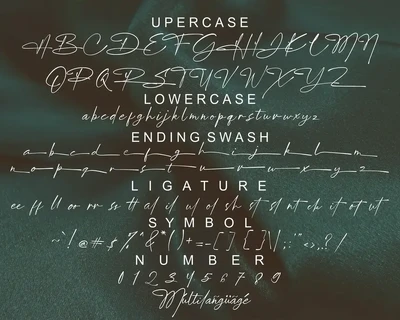 UPERCASE
ABCDEFGHIJKLMN
OPQRSTUVWXYZ
LOWERCASE
abcdefghijklmnopqrstuvwxyz
ENDING SWASH
a b c d e f g h i j k l m
n o p q r s t u v w x y z
LIGATURE
ee ff ll or rr ss tt al il ul ol sh st sl nt ch it ot ut
SYMBOL
NUMBER
0 1 2 3 4 5 6 7 8 9
Multilangüagé